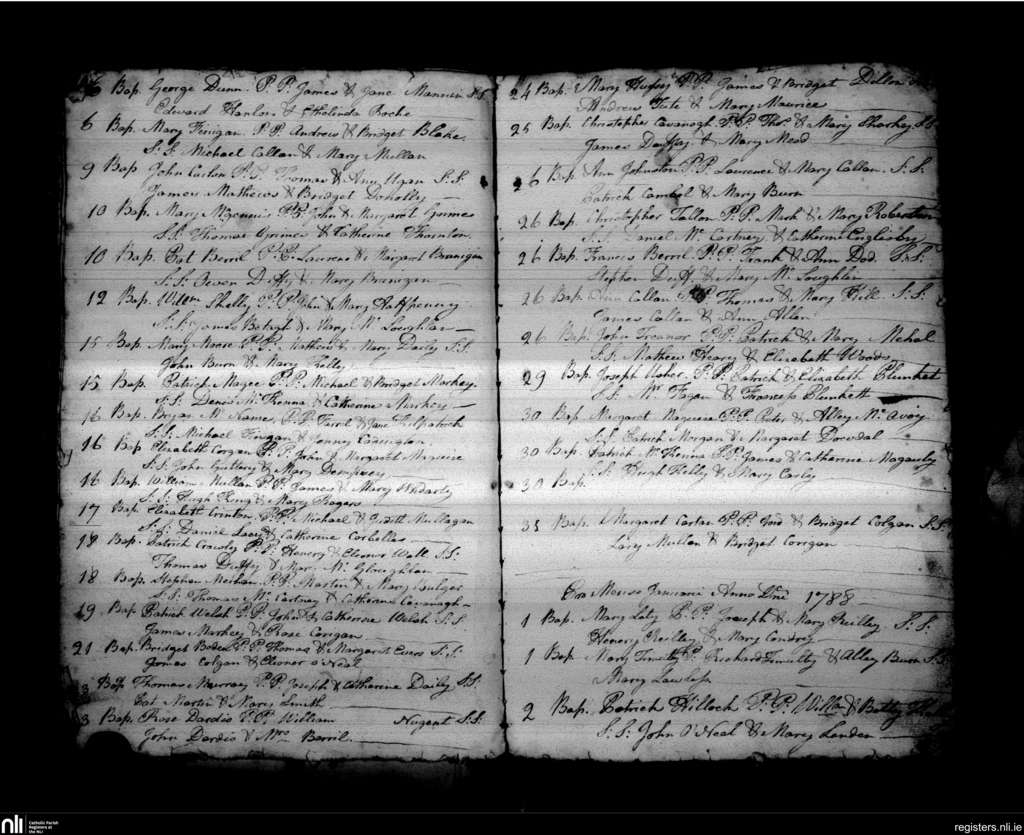 6 Bap. George Dunn. P.P. James & Jane Mannin S.S.
Edward Hanlon & Ethelinda Roche
6 Bap. Mary Finigan. P.P. Andrew & Bridget Blake.
S.S. Michael Callan & Mary Mullan
9 Bap. John P.P. Thomas & Ann S.S.
James Mathews & Bridget
10 Bap. Mary P.P. John & Margaret Grimes
S.S. Thomas Grimes & Catherine Thornton.
10 Bap. Pat Berril P.P. Laurence & Margaret Branigan
S.S. Owen Duffy & Mary Branigan
12 Bap. Willm Shelly P.P. John & Mary Halfpenny
S.S. James & Mary Mc Loughlan
15 Bap. Mary Moore P.P. Mathew & Mary Daily S.S.
John Burn & Mary Kelly.
15 Bap. Patrick Magee P.P. Michael & Bridget Markey.
S.S. Denis Mc Kenna & Catherine Markey
16 Bap. Bryan Mc Namee, P.P. Farrel & Jane Filpatrick
S.S. Michael Finigan & Jenney
16 Bap Elizabeth Corgan P.P. John & Margaret Maguire
S.S. John & Mary Dempsey
16 Bap. William Mullan P.P. James & Mary
S.S. Hugh King & Mary Rogers
17 Bap. Elizabeth P.P. Michael & Judith Mullagan
S.S. Daniel Lacy & Catherine Corbellis
18 Bap. Patrick Crawly P.P. Henery & Eleonor Wall S.S.
Thomas Duffy & Mary Mc Gloughlan
18 Bap. Stephen Meehan P.P. Martin & Mary Bulger
S.S. Thomas Mc Cartney & Catherine Cavanagh
19 Bap. Patrick Welsh P.P. John & Catherine Welsh S.S.
James Markey & Rose Corrigan
21 Bap. Bridget Boden P.P. Thomas & Margaret Evers S.S.
James Colgan & Eleonor O'Neal
3 Bap. Thomas Murray P.P. Joseph & Catharine Daily S.S.
Pat Martin & Mary Smith
3 Bap. Rose Dardis P.P. William Nugent S.S.
John Dardis & Mrs Berril.
24 Bap. Mary P.P. James & Bridget Dillon
Andrew & Mary Maurice
25 Bap. Christopher Cavanagh P.P. Thos & Mary Sharkey S.S.
James Duffey & Mary Mead
26 Bap. Ann Johnston P.P. Laurence & Mary Callan. S.S.
Patrick Cambel & Mary Burn
26 Bap. Christopher Fallon P.P. Mark & Mary Robertson
S.S. Daniel Mc Cartney & Catharine
26 Bap. Francis Berril P.P. Frank & Ann Dod. S.S.
Stephen Duffy & Mary Mc Loughlin
26 Bap. Ann Callan P.P. Thomas & Mary Hill S.S.
James Callan & Ann Allen
26 Bap. John Treanor P.P. Patrick & Mary Mehal
S.S. Mathew Geary & Elizabeth Woods
29 Bap. Joseph Usher. P.P. Patrick & Elizabeth Plunket
S.S. Mr Fagan & Frances Plunkett
30 Bap. Margaret Maguire P.P. Peter & Alley Mc avoy
S.S. Patrick Morgan & Margaret Dowdal
30 Bap. Patrick Mc Kenna P.P. James & Catharine Magauly
S.S. Hugh Kelly & Mary Carly
30 Bap.
31 Bap. Margaret Carter P.P. & Bridget Colgan S.S.
Lacy Mullen & Bridget Corrigan
Mense Januarii Anno Dni 1788
1 Bap. Mary P.P. Joseph & Mary Reilley S.S.
Henery Reilley & Mary Condry
1 Bap. Mary P.P. Richard & Alley Burn S.S.
Mary Lawless
2 Bap. Patrick Hilloch P.P. Willm & Betty
S.S. John O'Neal & Mary Lenden
nli Catholic Parish
Registers at
the NLI
registers.nli.ie